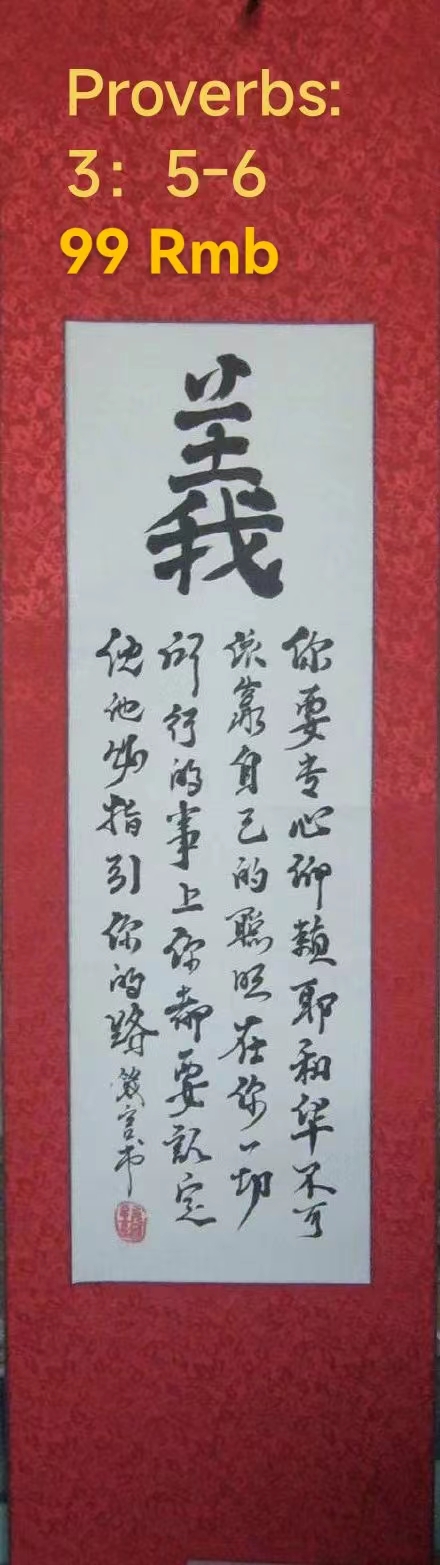 Proverbs:
3：5-6
99 Rmb
義
你要专心仰賴耶和华不可
倚靠自己的聰明在你一切
所行的事上你都要認定
他他必指引你的路
箴言书